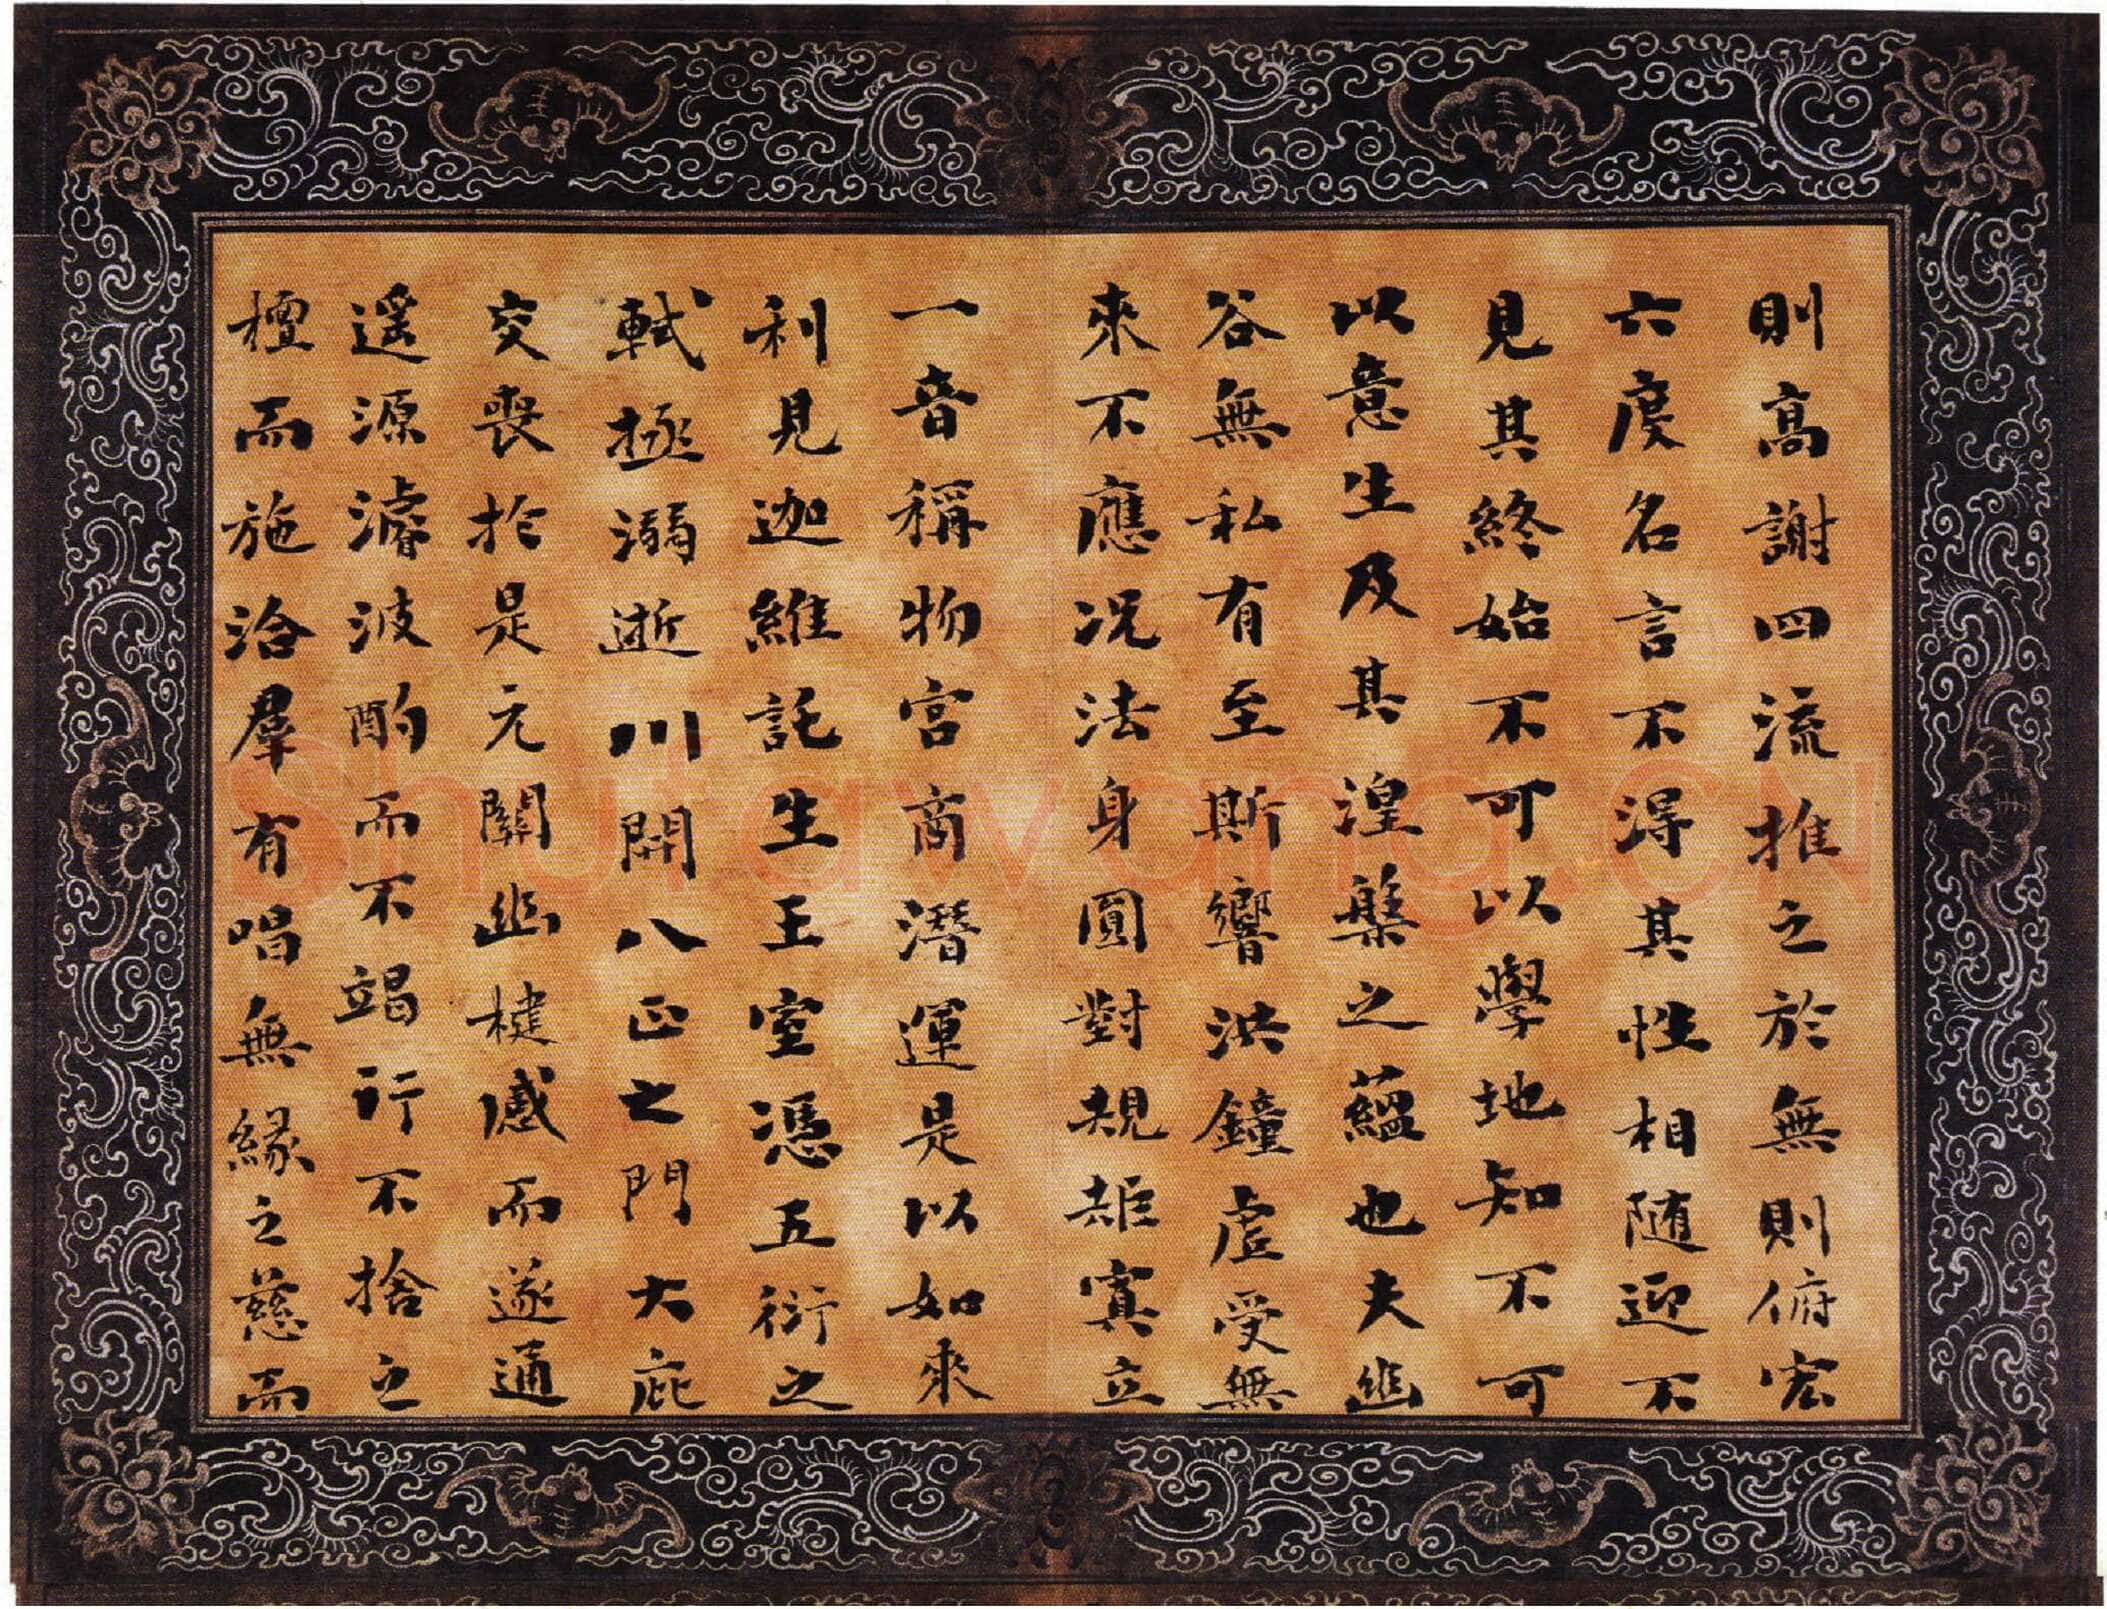 則高謝四流推之於無則俯宏
六度名言不得其性相随迎不
見其終始不可以學地知不可
以意生及其湼槃之蘊也夫幽
谷無私有至斯響洪鐘虛受無
來不應况法身圓對規矩㝠立
一音稱物宮商潛運是以如來
利見迦維託生王室憑五衍之
軾拯溺逝川開八正之門大庇
交喪於是元關幽楗感而遂通
遥源濬波酌而不竭行不捨之
檀而施洽羣有唱無緣之慈而
Shufawang.CN